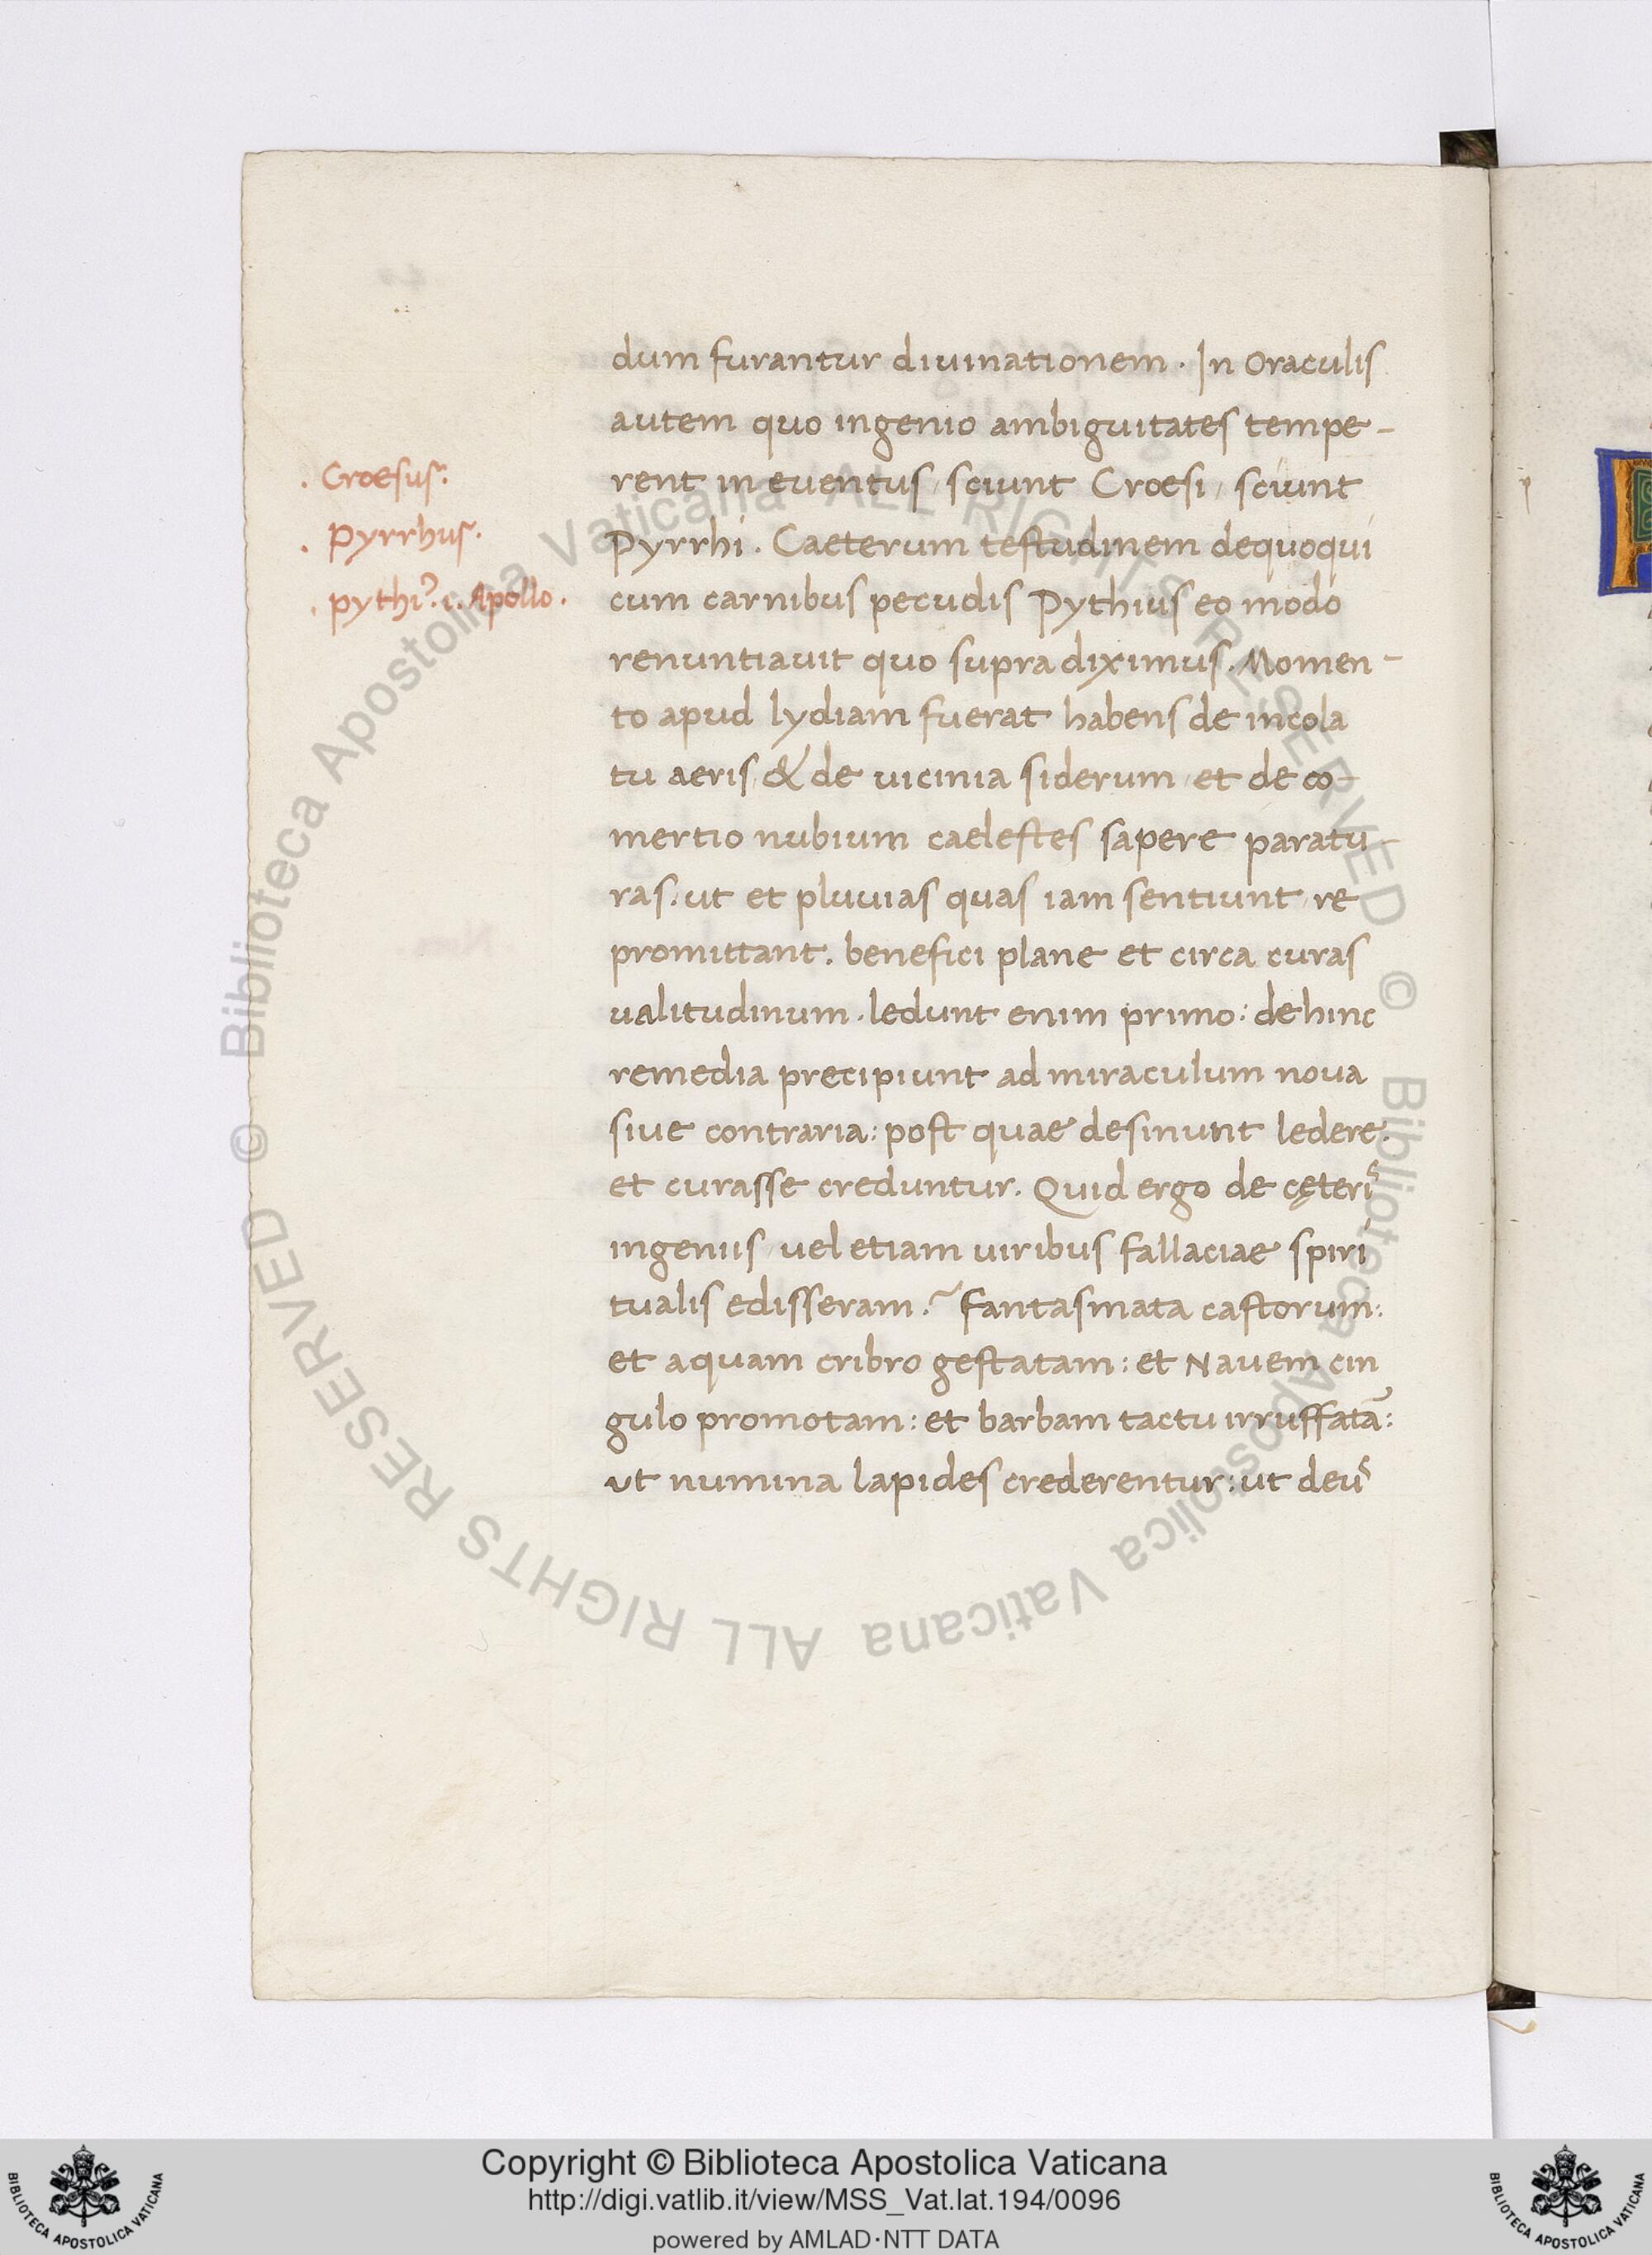 dum furantur diuinationem. In Oraculis
autem quo ingenio ambiguitates tempe-
rent in euentus, sciunt Croesi, sciunt
. Croesus.
Pyrrhi. Caeterum testudinem dequoqui
. Pyrrhus.
cum carnibus pecudis Pythius eo modo
. pythiꝰ. i. Apollo.
renuntiauit quo supra diximus. Momen-
to apud lydiam fuerat habens de incola
tu aeris, & de uicinia siderum, et de co-
mertio nubium caelestes sapere paratu-
ras. ut et pluuias quas iam sentiunt, re
promittant. benefici plane et circa curas
ualitudinum. ledunt enim primo: dehinc
remedia precipiunt ad miraculum noua
siue contraria: post quae desinunt ledere.
et curasse creduntur. Quid ergo de cęteris
ingeniis, uel etiam uiribus fallaciae spiri
tualis edisseram.~ Fantasmata castorum:
et aquam cribro gestatam: et Nauem cin
gulo promotam: et barbam tactu irruffatã:
ut numina lapides crederentur: ut deus
© Biblioteca Apostolica Vaticana ALL RIGHTS RESERVED © Biblioteca Apostolica Vaticana ALL RIGHTS RESERVED
Copyright © Biblioteca Apostolica Vaticana
http://digi.vatlib.it/view/MSS_Vat.lat.194/0096
powered by AMLAD·NTT DATA
BIBLIOTECA APOSTOLICA VATICANA
BIBLIOTECA APOSTOLICA VATICANA